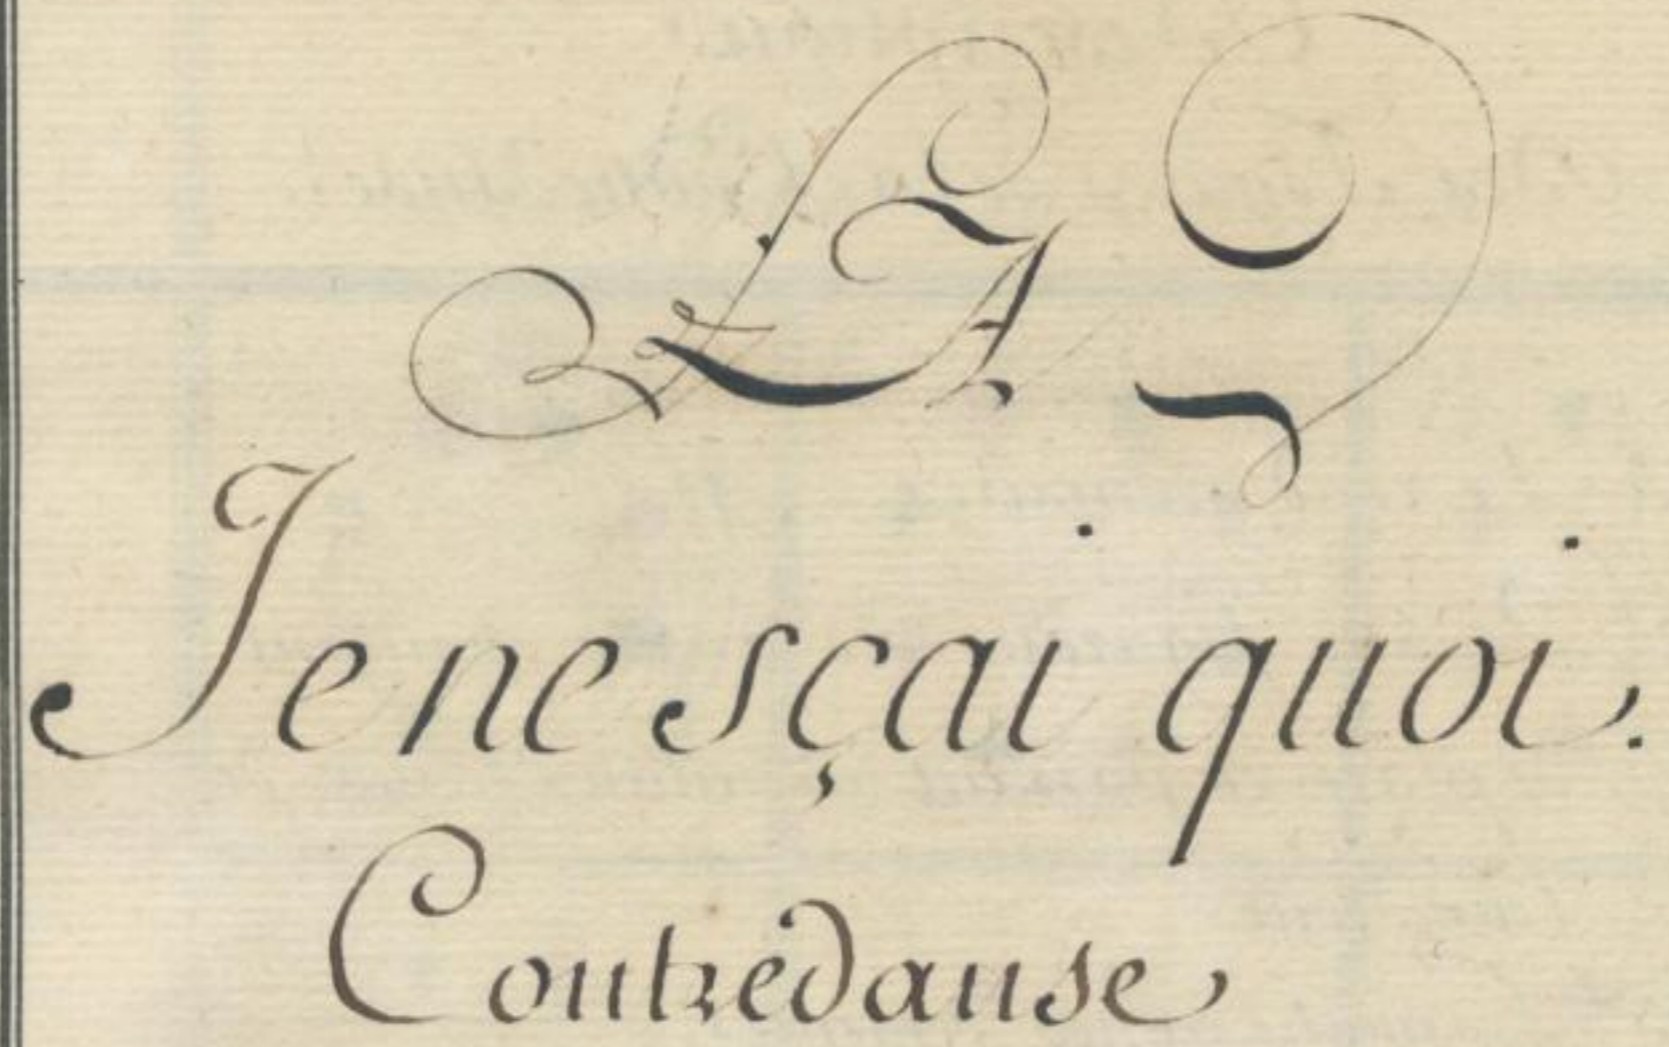 LA
Je ne sçai quoi.
Contredanse